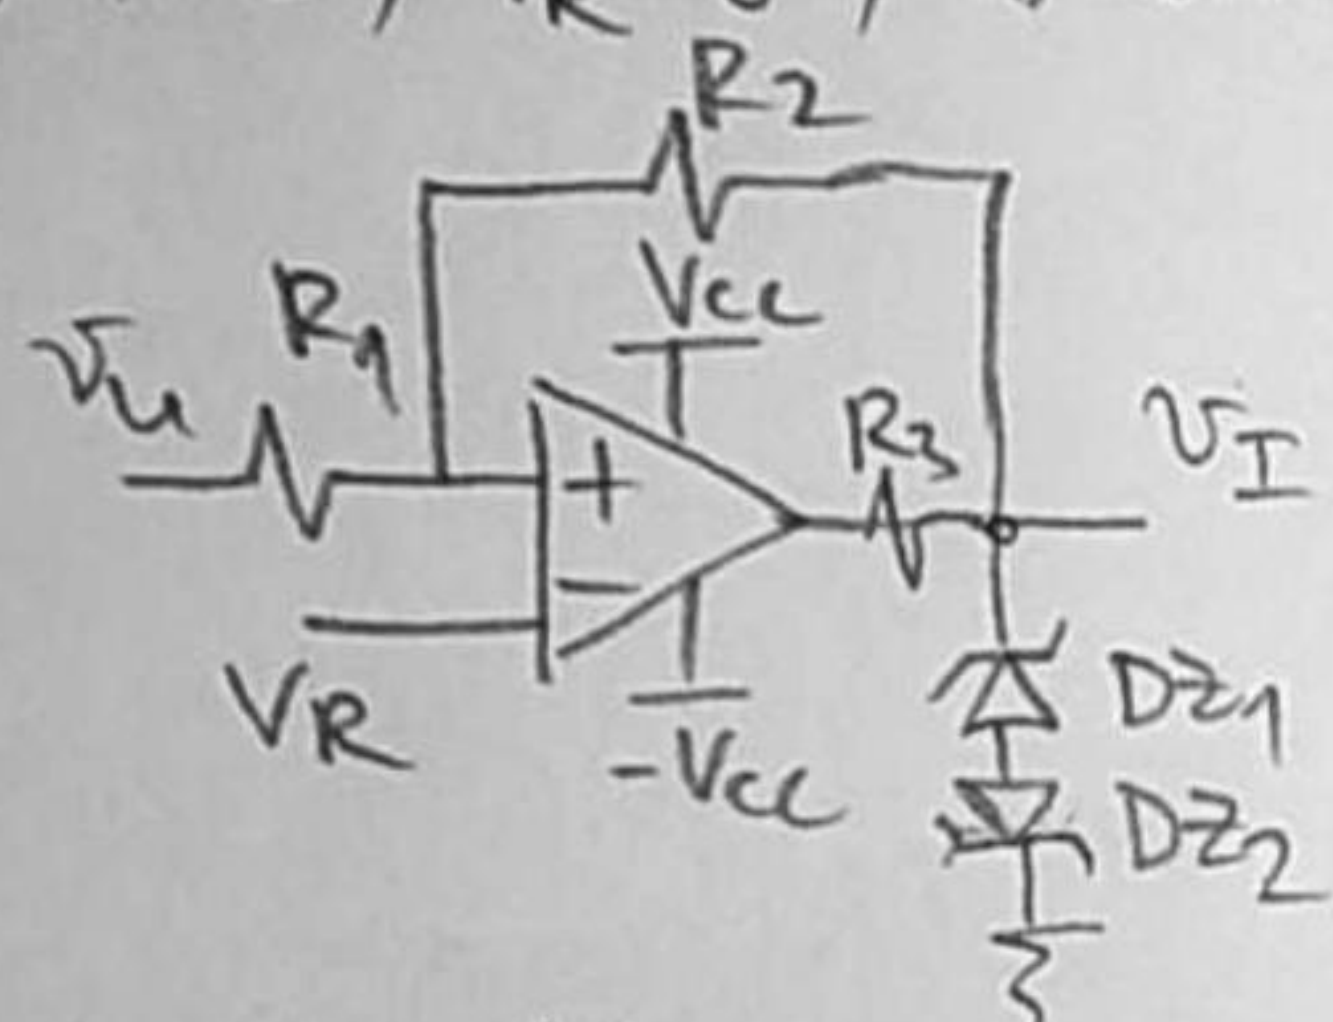 R2
Vcc
R1
vu
R3
vI
+
−
VR
-Vcc
DZ1
DZ2